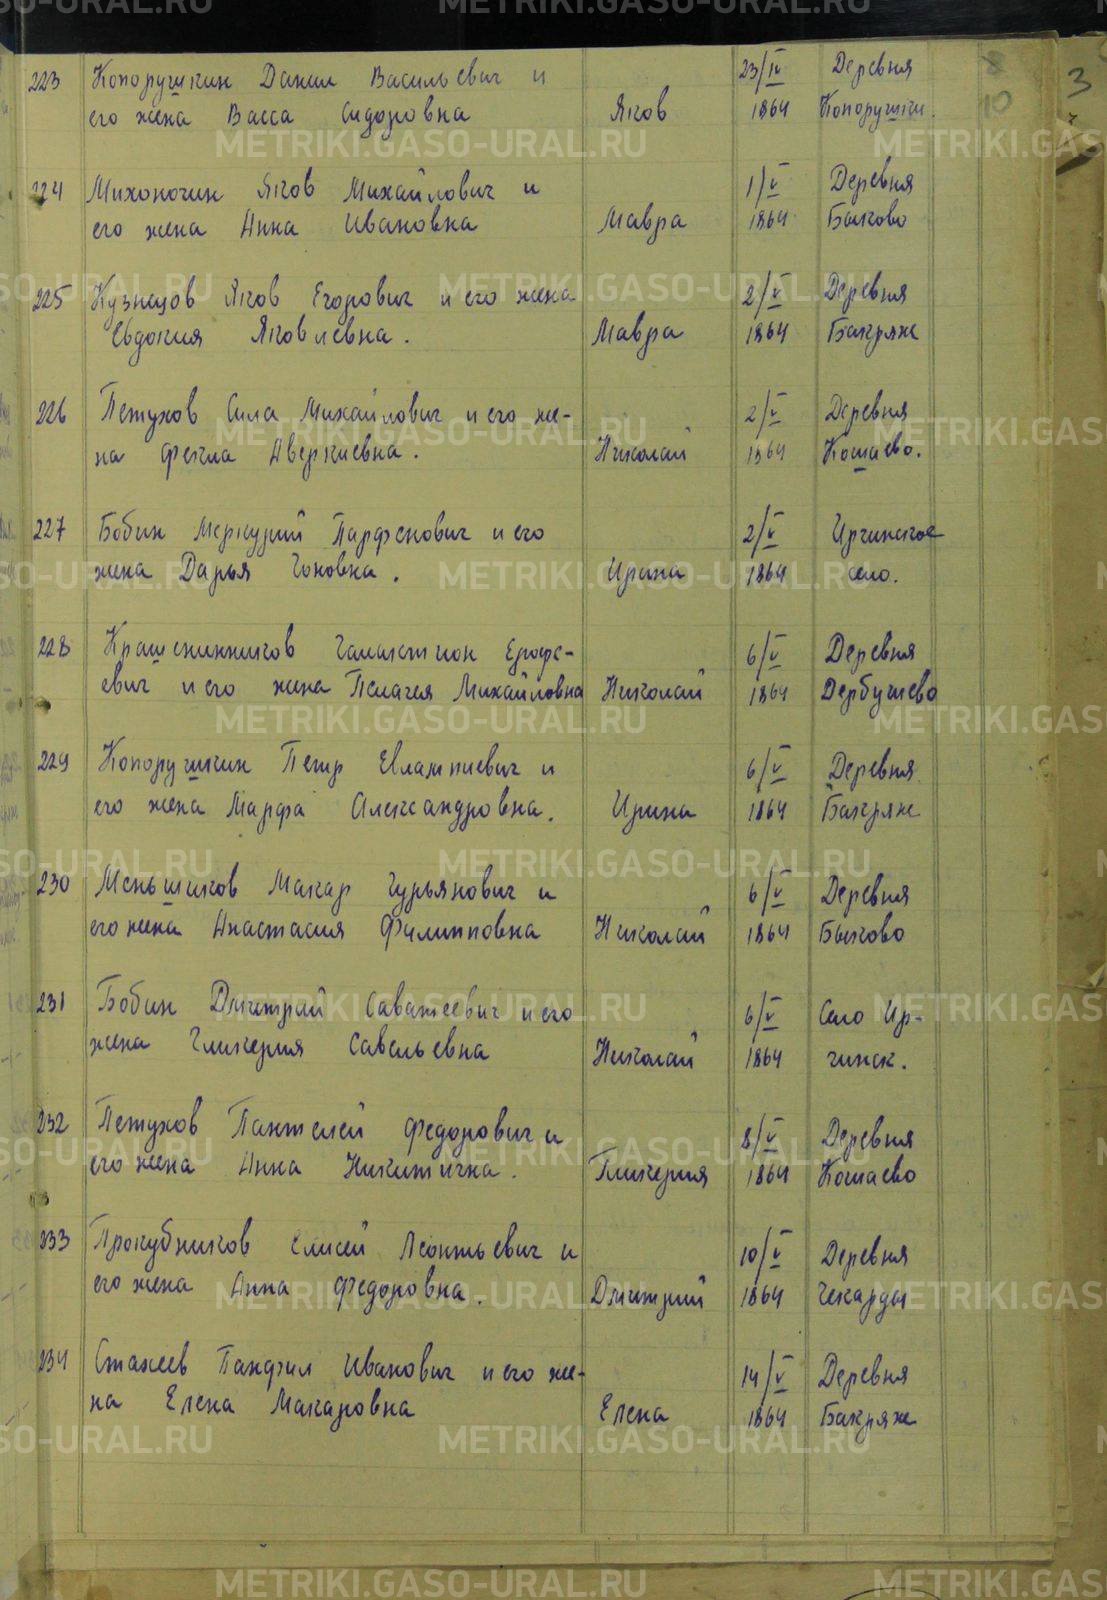 223 Копорушкин Данил Васильевич и 23/IV Деревня
его жена Васса Сидоровна Яков 1864 Копорушки.
224 Михоночин Яков Михайлович и 1/V Деревня
его жена Анна Ивановна Мавра 1864 Быково
225 Кузнецов Яков Егорович и его жена 2/V Деревня
Евдокия Яковлевна. Мавра 1864 Бакряж
226 Петухов Сила Михайлович и его же- 2/V Деревня
на Фекла Аверкиевна. Николай 1864 Кошаево.
227 Бобин Меркурий Парфенович и его 2/V Иргинское
жена Дарья Ионовна. Ирина 1864 село.
228 Крашенинников Галактион Ерофе- 6/V Деревня
евич и его жена Пелагея Михайловна Николай 1864 Дербушево
229 Копорушкин Петр Евлампиевич и 6/V Деревня
его жена Марфа Александровна. Ирина 1864 Бакряж
230 Меньшиков Макар Гурьянович и 6/V Деревня
его жена Анастасия Филипповна Николай 1864 Быково
231 Бобин Дмитрий Саватеевич и его 6/V Село Ир-
жена Гликерия Савельевна Николай 1864 гинск.
232 Петухов Пантелей Федорович и 8/V Деревня
его жена Анна Никитична. Гликерия 1864 Кошаево
233 Прокубников Елисей Леонтьевич и 10/V Деревня
его жена Анна Федоровна. Дмитрий 1864 Чекарды
234 Стахеев Панфил Иванович и его же- 14/V Деревня
на Елена Макаровна Елена 1864 Бакряж
10
3
METRIKI.GASO-URAL.RU